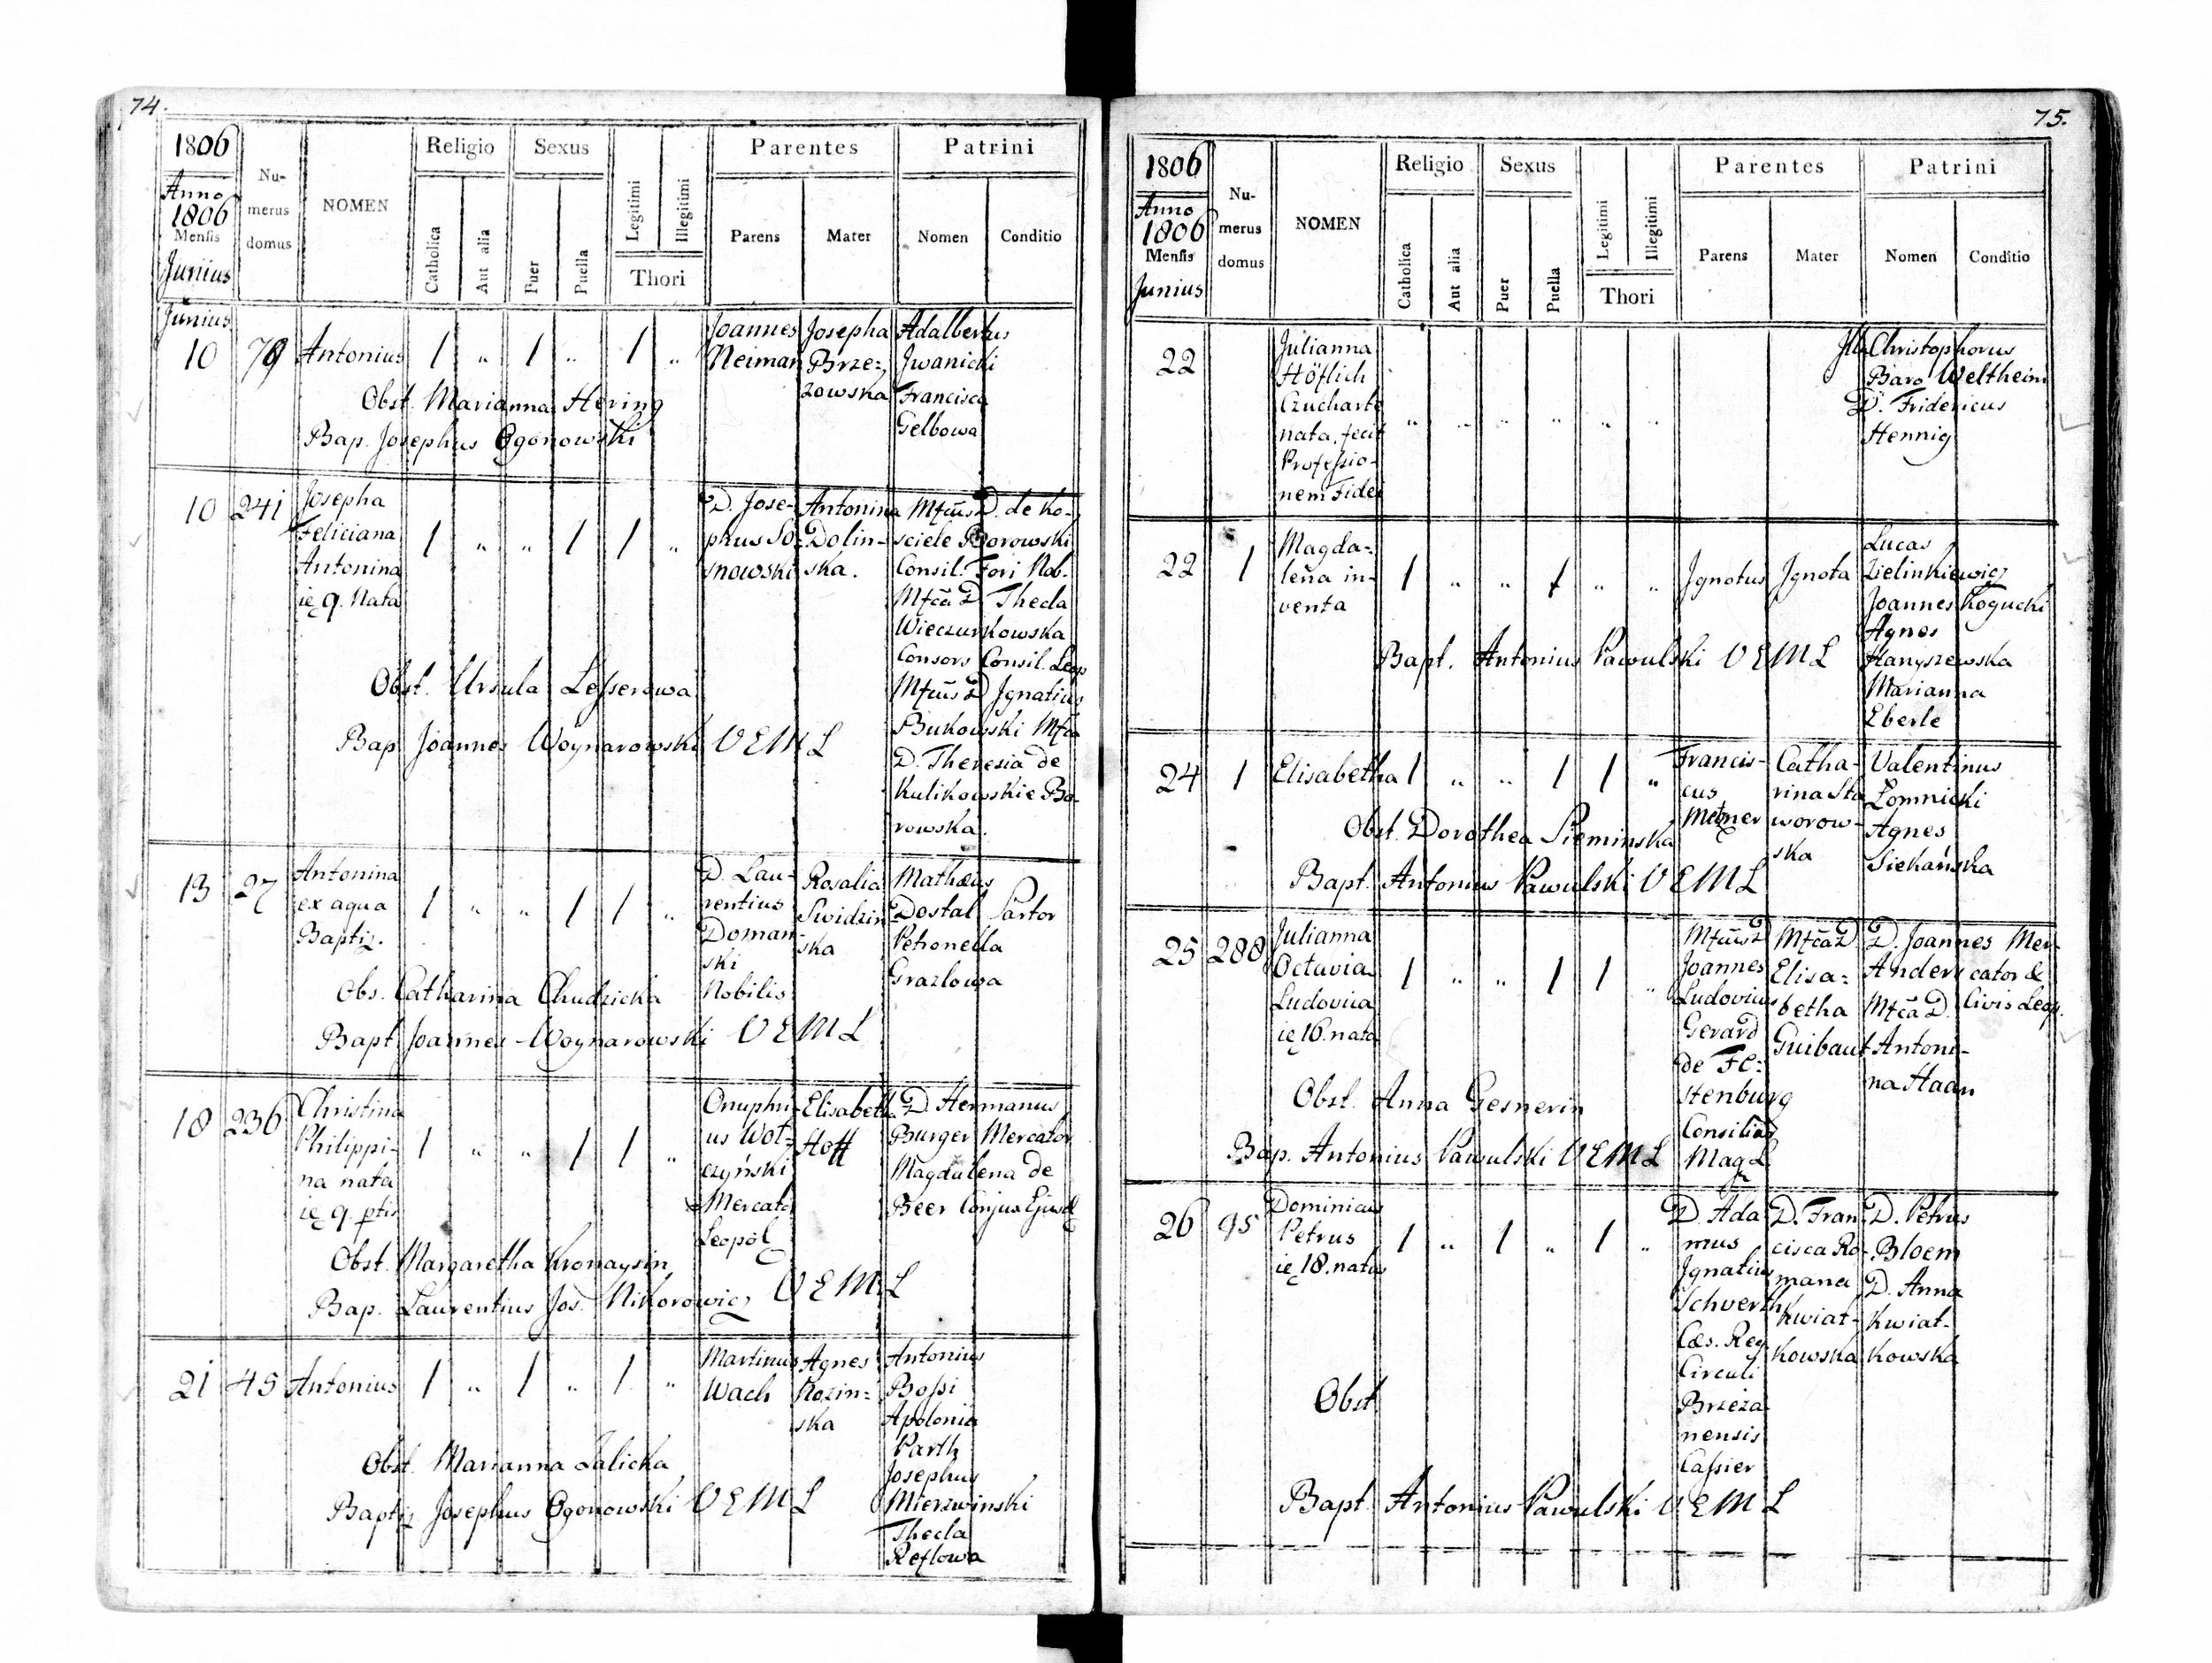 74.
1806
Anno
1806
Mensis
Junius
Nu-
merus
domus
NOMEN
Religio
Catholica
Aut alia
Sexus
Puer
Puella
Legitimi
Illegitimi
Thori
Parentes
Parens
Mater
Patrini
Nomen
Conditio
Junius
10 79 Antonius 1 " 1 " 1 "
Joannes
Neiman
Josepha
Brze-
zowska
Adalbertus
Jwanicki
Francisca
Gelbowa
Obst. Marianna Hering
Bap. Josephus Ogonowski
10 241
Josepha
Feliciana
Antonina
ie 9. Nata
1 " " 1 1 "
D. Jose-
phus So-
snowski
Antonina
Dolin-
ska.
Mfcus D. de Ko-
sciele Borowski
Consil. Fori Nob.
Mfca D. Thecla
Wieczurkowska
Consors Consil. Leop
Mfcus D Jgnatius
Bukowski Mfca
D. Theresia de
Kulikowskie Bo-
rowska.
Obst. Ursula Lesserowa
Bap Joannes Woynarowski V E M L
13 27
Antonina
ex aqua
Baptiz.
1 " " 1 1 "
D. Lau-
rentius
Doman-
ski
Nobilis
Rosalia
Swidzin
ska
Mathæus
Dostal Sartor
Petronella
Grazlowa
Obs. Catharina Chudzicka
Bapt Joannes Woynarowski V E M L
18 236
Christina
Philippi-
na nata
ie 9. ptis
1 " " 1 1 "
Onuphri-
us Wol-
czyński
Mercator
Leopol
Elisabeth
Hoff
D. Hermanus
Burger Mercator
Magdalena de
Beer Conjux Ejusd
Obst. Margaretha Kronaysin
Bap. Laurentius Jos. Nikorowicz V E M L
21 45 Antonius 1 " 1 " 1 "
Martinus
Wach
Agnes
Rozin-
ska
Antonius
Bossi
Apolonia
Parth
Josephus
Mierzwinski
Thecla
Reflowa
Obst. Marianna Zalicka
Baptiz Josephus Ogonowski V E M L
75.
1806
Anno
1806
Mensis
Junius
Nu-
merus
domus
NOMEN
Religio
Catholica
Aut alia
Sexus
Puer
Puella
Legitimi
Illegitimi
Thori
Parentes
Parens
Mater
Patrini
Nomen
Conditio
22
Julianna
Höflich
Czucharte
nata, fecit
Professio-
nem Fidei
" " " " " "
Ill. Christophorus
Baro Weltheim
D. Fridericus
Hennig
22 1
Magda-
lena in-
venta
1 " " 1 " "
Jgnotus Jgnota
Lucas
Zielinkiewicz
Joannes Kogucki
Agnes
Hanyszewska
Marianna
Eberle
Bapt. Antonius Pawulski V E M L
24 1 Elisabetha 1 " " 1 1 "
Francis-
cus
Metzner
Catha-
rina Sta
worow-
ska
Valentinus
Łomnicki
Agnes
Siekańska
Obst. Dorothea Sieminska
Bapt. Antonius Pawulski V E M L
25 288
Julianna
Octavia
Ludovica
ie 16. nata
1 " " 1 1 "
Mfcus D
Joannes
Ludovicus
Gerard
de Fe-
stenburg
Consilia
Mag L
Mfca D.
Elisa-
betha
Guibaut
D. Joannes Mer-
Ander cator &
Mfca D. Civis Leop.
Antoni-
na Haan
Obst. Anna Gesnerin
Bap. Antonius Pawulski V E M L
26 95
Dominicus
Petrus
ie 18. natus
1 " 1 " 1 "
D. Ada
mus
Jgnatius
Schverth
Cæs. Reg
Circuli
Brzeza
nensis
Cassier
D. Fran-
cisca Ro-
mana
Kwiat-
kowska
D. Petrus
Bloem
D. Anna
Kwiat-
kowska
Obst
Bapt. Antonius Pawulski V E M L